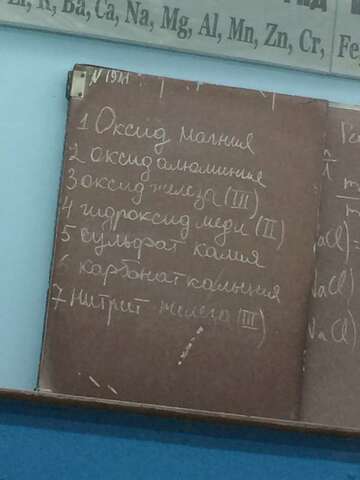 Li, K, Ba, Ca, Na, Mg, Al, Mn, Zn, Cr, Fe,
1 Оксид магния
2 оксид алюминия
3 оксид железа (III)
4 гидроксид меди (II)
5 сульфат калия
6 карбонат кальция
7 нитрит железа (III)